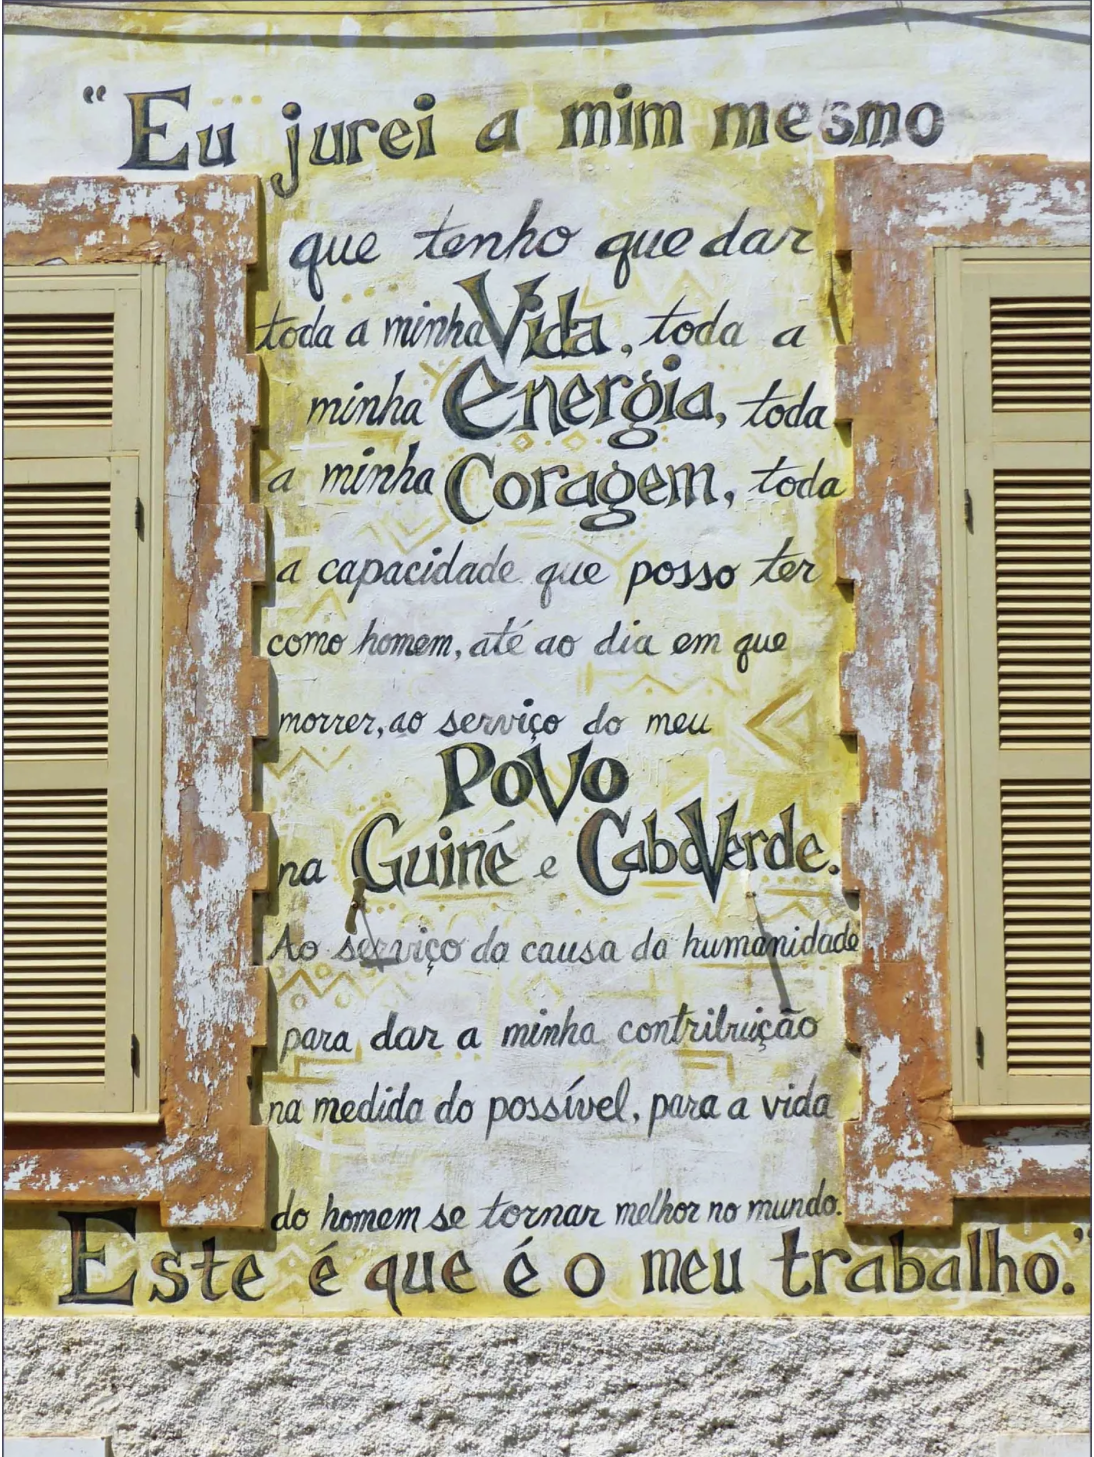 “Eu jurei a mim mesmo
que tenho que dar
toda a minha Vida, toda a
minha Energia, toda
a minha Coragem, toda
a capacidade que posso ter
como homem, até ao dia em que
morrer, ao serviço do meu
PoVo
na Guiné e CaboVerde.
Ao serviço da causa da humanidade
para dar a minha contribuição
na medida do possível, para a vida
do homem se tornar melhor no mundo.
Este é que é o meu trabalho.”